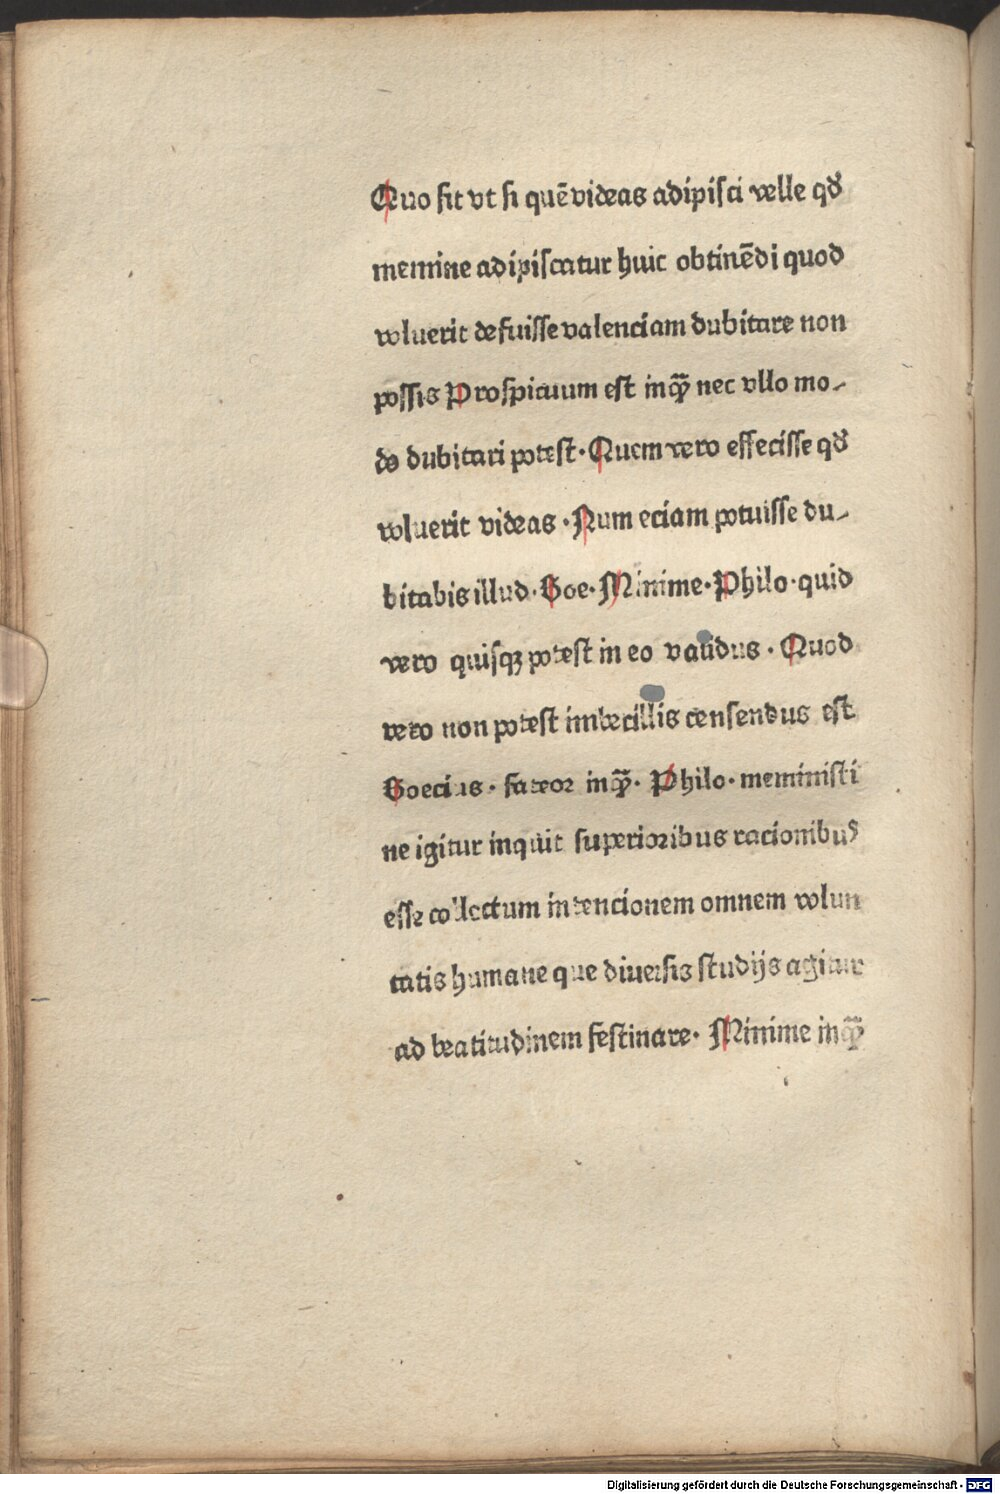 Quo sit vt si quē videas adipisci velle qđ
memine adipiscatur huic obtinēdi quod
voluerit defuisse valenciam dubitare non
possis Prospicuum est inqͣꝫ nec vllo mo-
do dubitari potest. Quem vero effecisse qđ
voluerit videas. Num eciam potuisse du-
bitabis illud. Boe. Minime. Philo. quid
vero quisqꝫ potest in eo validus. Quod
vero non potest imbecillis censendus est
Boecius. fateor inqͣꝫ. Philo. meministi
ne igitur inquit superioribus racionibuꝰ
esse collectum intencionem omnem volun
tatis humane que diuersis studijs agitur
ad beatitudinem festinare. Minime inqͣꝫ
Digitalisierung gefördert durch die Deutsche Forschungsgemeinschaft - DFG